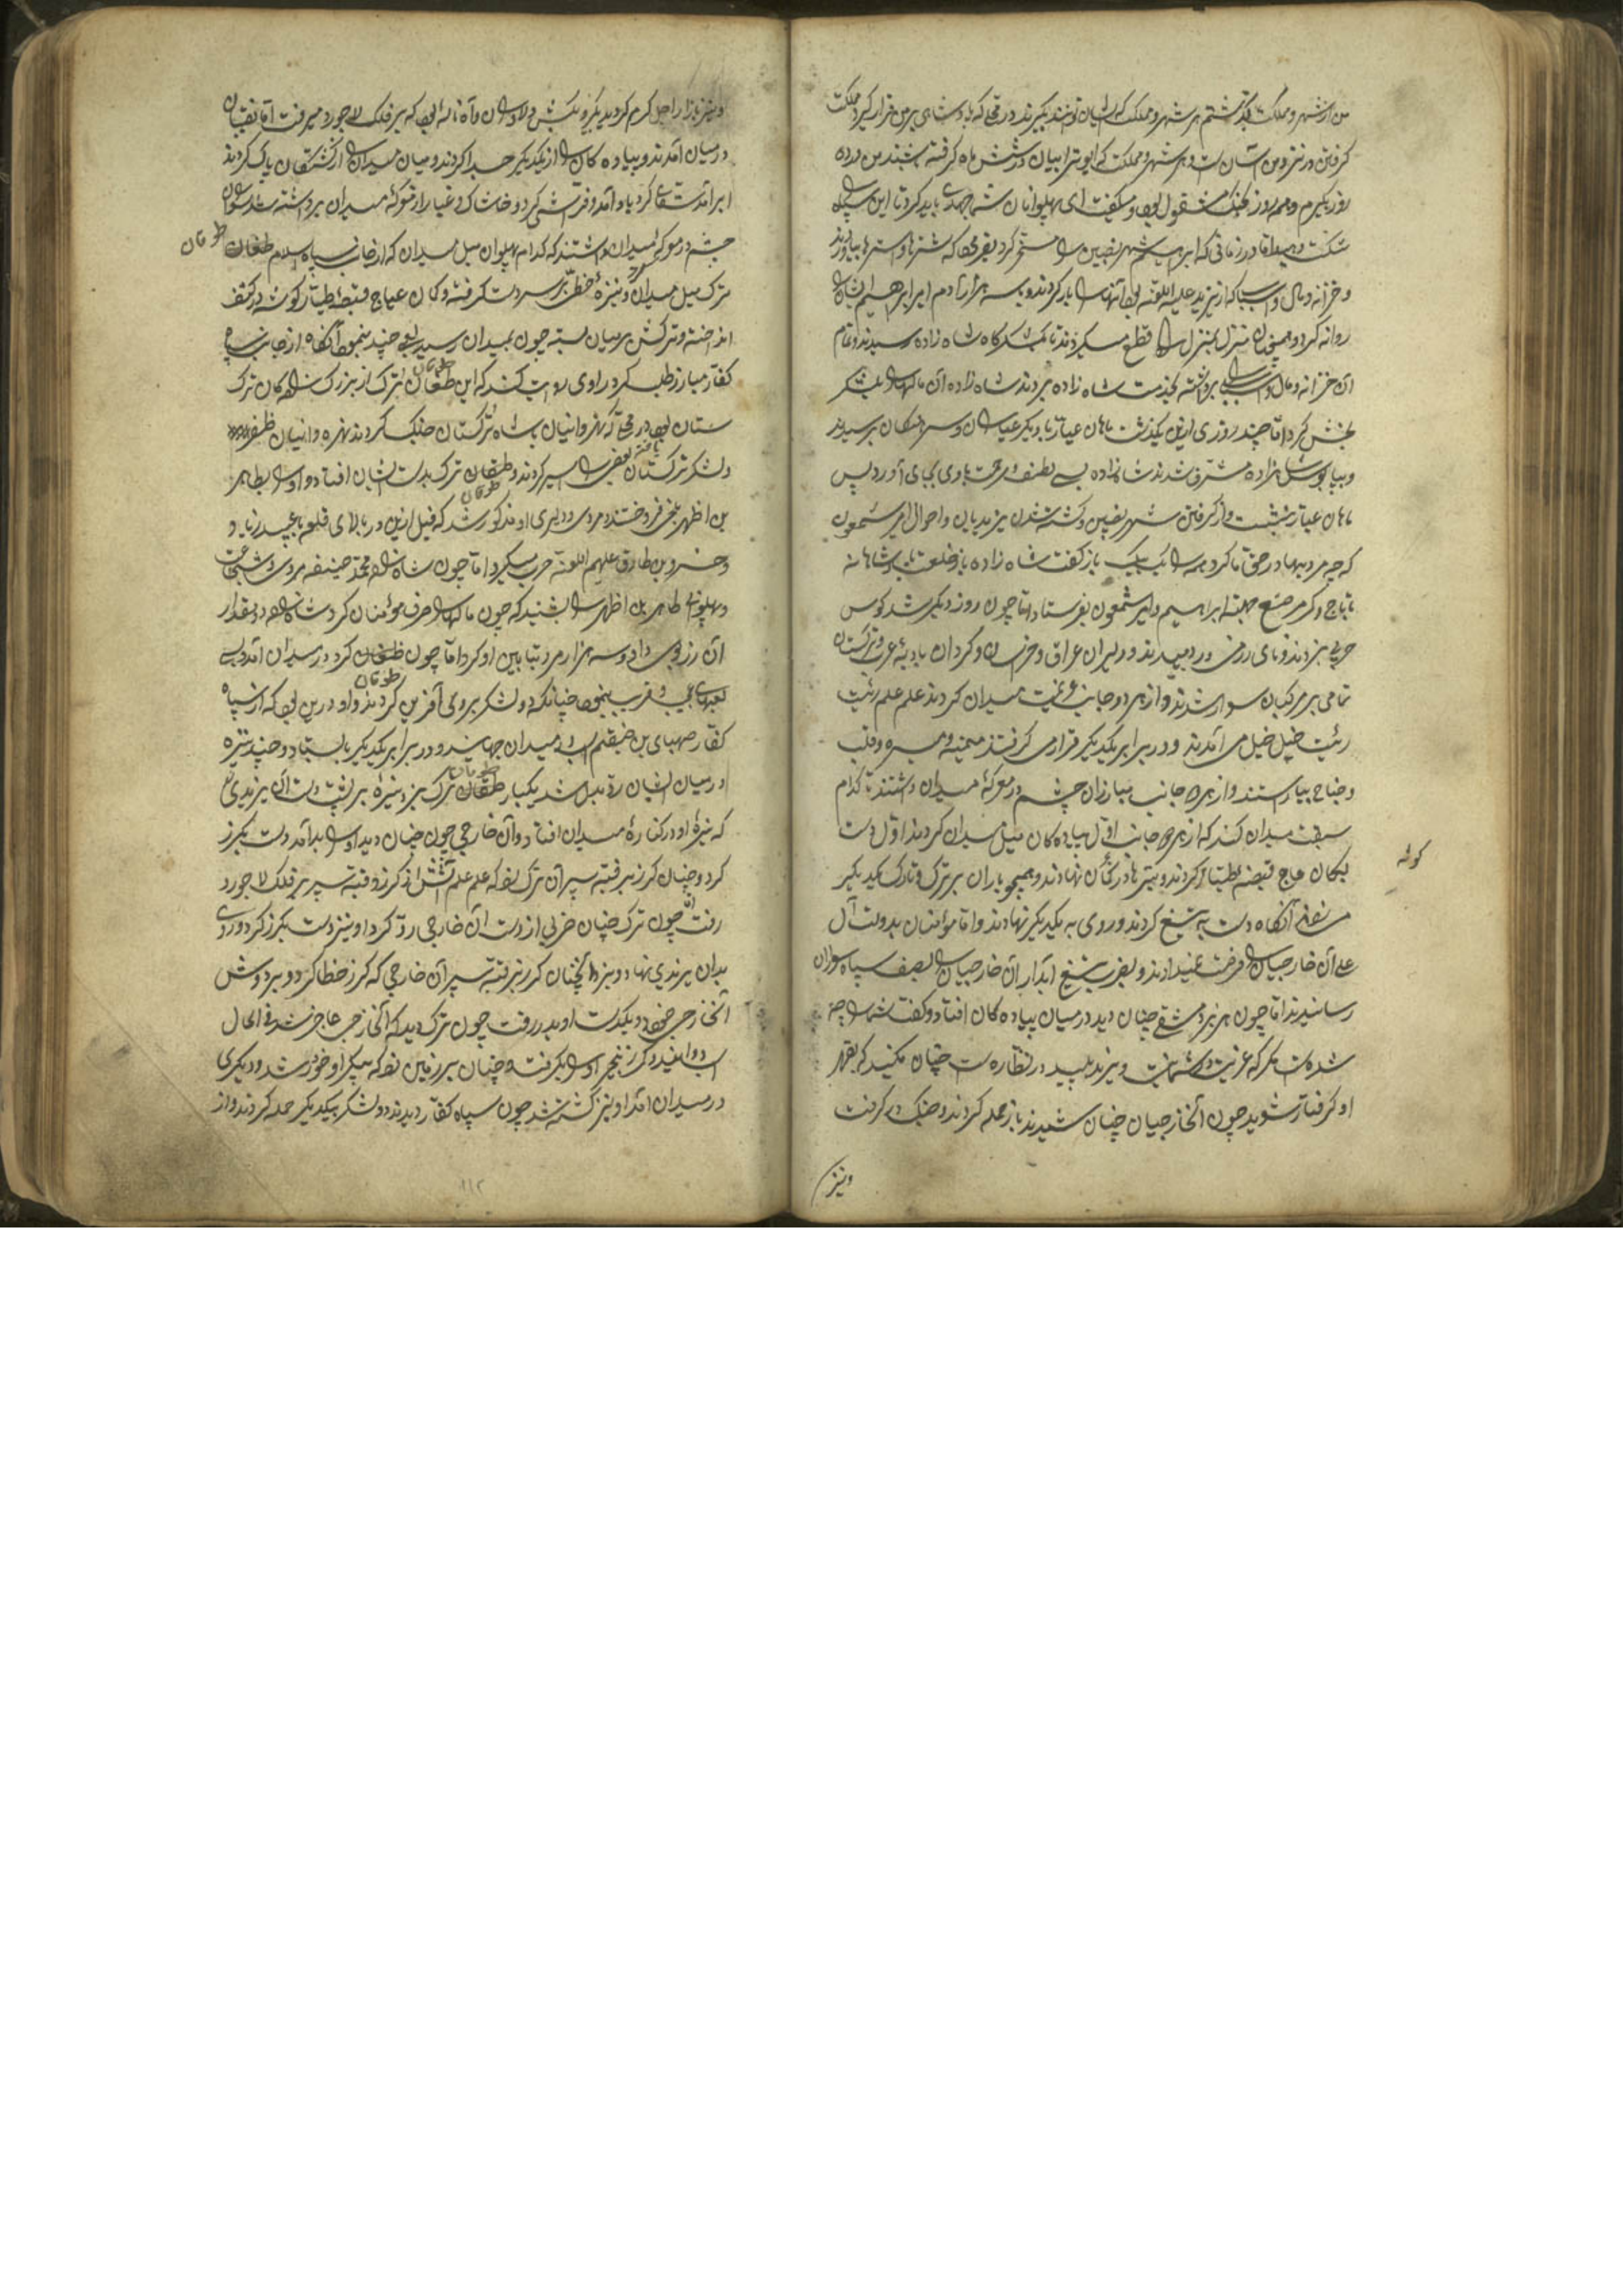 من از شهر و مملکت بگذشتم هر شهر و مملکت که ایشان توانند بگیرند در وقتی که پادشاهی بر من قرار گیرد مملکت
گرفتن در نزد من آسان است و هر شهر و مملکت که ابوترابیان در شش ماه گرفته باشند من در ده
روز بگیرم و همه روز بجنگ مشغول بود و میگفت ای پهلوانان شما جهدی باید کرد تا این سپاه
شکست دهید اما در زمانی که ابراهیم شهر نصیبین را مسخر کرد بفرمود که شترها و استرها بیاورند
و خزانه و مال و اسباب که از یزید علیه اللعنه بود آنها را بار کردند و با سه هزار آدم امیر ابراهیم ایشان را
روانه کرد و همچنان منزل بمنزل راه قطع میکردند تا بلشکرگاه شاه زاده رسیدند و تمام
آن خزانه و مال و اسباب را برداشته بخدمت شاه زاده بردند شاه زاده آن مالها را بلشکر
بخش کرد اما چند روزی ازین بگذشت ماهان عیار با دیگر عیاران و سرهنگان برسیدند
و بپابوس شاهزاده مشرف شدند شاهزاده بسی لطف و مرحمت با وی بجای آورد پس
ماهان عیار بنشست و از گرفتن شهر نصیبین و کشته شدن یزیدیان و احوال امیر شمعون
که چه مردیها در حق ما کرد همه را یک بیک بازگفت شاه زاده باز خلعت پادشاهانه
با تاج و کمر مرصع جهت ابراهیم و امیر شمعون بفرستاد اما چون روز دیگر شد کوس
حربی بزدند و نای رزمی در دمیدند و دلیران عراق و خراسان و گردان بادیه عرب و ترکستان
تمامی بر مرکبان سوار شدند و از هر دو جانب عزیمت میدان کردند علم علم رایت
رایت خیل خیل می آمدند و در برابر یکدیگر قرار می گرفتند میمنه و میسره و قلب
و جناح بیاراستند و از هر دو جانب مبارزان چشم در معرکه میدان داشتند تا کدام
سبقت میدان کند که از هر دو جانب اول پیاده کان میل میدان کردند اول دست
بکمان عاج قبضه طیار کردند و تیرها در کمان نهادند و همچو باران بر ترک و تارک یکدیگر
کوشه
میزدند آنگاه دست به تیغ کردند و روی به یکدیگر نهادند و اما مؤمنان بدولت آل
علی آن خارجیان را فرصت نمیدادند و بضرب تیغ آبدار آن خارجیان را بصف سپاه سواران
رسانیدند اما چون هزبر دمشقی چنان دید در میان پیاده کان افتاد و گفت شما را چه
شده است مگر که غیرت در شما نیست و یزید پلید در نظاره است چنان مکنید که بقهر
او گرفتار شوید چون آنخارجیان چنان شنیدند باز حمله کردند و جنگ در گرفت
و نیز
و نیز بازار اجل گرم گردید بگیر و بکش دلاوران و آه و ناله بود که بر فلک لاجورد میرفت اما نقیبان
در میان آمدند و پیاده کان را از یکدیگر جدا کردند و میان میدان را از کشتگان پاک کردند
ابر آمد سقایی کرد باد آمد فراشی کرد و خاشاک و غبار از معرکه میدان برداشته شد سواران
چشم در معرکه میدان داشتند که کدام پهلوان میل میدان که از جانب سپاه اسلام طغان
طوقان
ترک میل میدان کرد و نیزه خطی بر سر دست گرفته و کمان عاج قبضه طیار گوشه در کتف
انداخته و ترکش بر میان بسته چون بمیدان رسید لعبی چند بنمود آنگاه از جانب سپاه
کفار مبارز طلب کرد راوی روایت کند که این طغان ترک از بزرگ زاده کان ترک
طوقان
ستان بود در وقتی که نهروانیان با شاه ترکستان جنگ کردند نهروانیان ظفر
یافته
و لشکر ترکستان بعضی را اسیر کردند و طغان ترک بدست ایشان افتاد و او را بطاهر
طوقان
بن اظهر بلخی فروختند و مردی و دلیری او مذکور شد که قبل ازین در بالای قلعه با عبید زیاد و
و خسرو بن طارق علیهم اللعنه حرب میکرد اما چون شاه زاده محمد حنیفه مردی و شجاعت
و پهلوانی طاهر بن اظهر را شنید که چون مالها را صرف مؤمنان کرد شاه زاده دو مقدار
آن زر بوی داد و سه هزار مرد تابین او کرد اما چون طغان کرد در میدان آمد بسی
طوقان
لعبهای عجیب و غریب بنمود چنانکه دو لشکر بر وی آفرین کردند و او درین بود که از سپاه
کفار صهبای بن ضیغم اسب در میدان جهانید و در برابر یکدیگر بایستاد و چند نیزه
در میان ایشان رد بدل شد یکبار طغان ترک بزد نیزه بر پشت دست آن یزیدی
طوقان
که نیزه او در کناره میدان افتاد و آن خارجی چون چنان دید او را بد آمد دست بگرز
کرد و چنان گرز بر قبه سپر آن ترک زد که علم علم آتش از گرز و قبه سپر بر فلک لاجورد
رفت چون ترک چنان ضربی از دست آن خارجی رد کرد او نیز دست بگرز کرد و روی
بدان یزیدی نهاد و بزد آنچنان گرز بر قبه سپر آن خارجی که گرز خطا کرد و بر دوش
آنخارجی خورد و بگذشت او بدر رفت چون ترک دید که آنخارجی عاجز شد فی الحال
اسب دوانید و گرز زنجیر او را بگرفت و چنان بر زمین زد که پیکر او خورد شد و دیگری
در میدان آمد او نیز کشته شد چون سپاه کفار دیدند دو لشکر بیکدیگر حمله کردند و از
۱۱۲